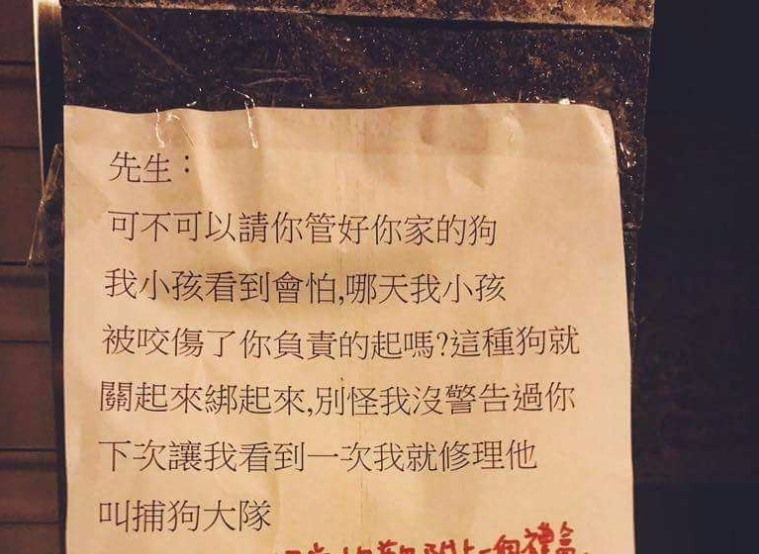 先生：
可不可以請你管好你家的狗
我小孩看到會怕,哪天我小孩
被咬傷了你負責的起嗎?這種狗就
關起來綁起來,別怪我沒警告過你
下次讓我看到一次我就修理他
叫捕狗大隊
一個禮盒